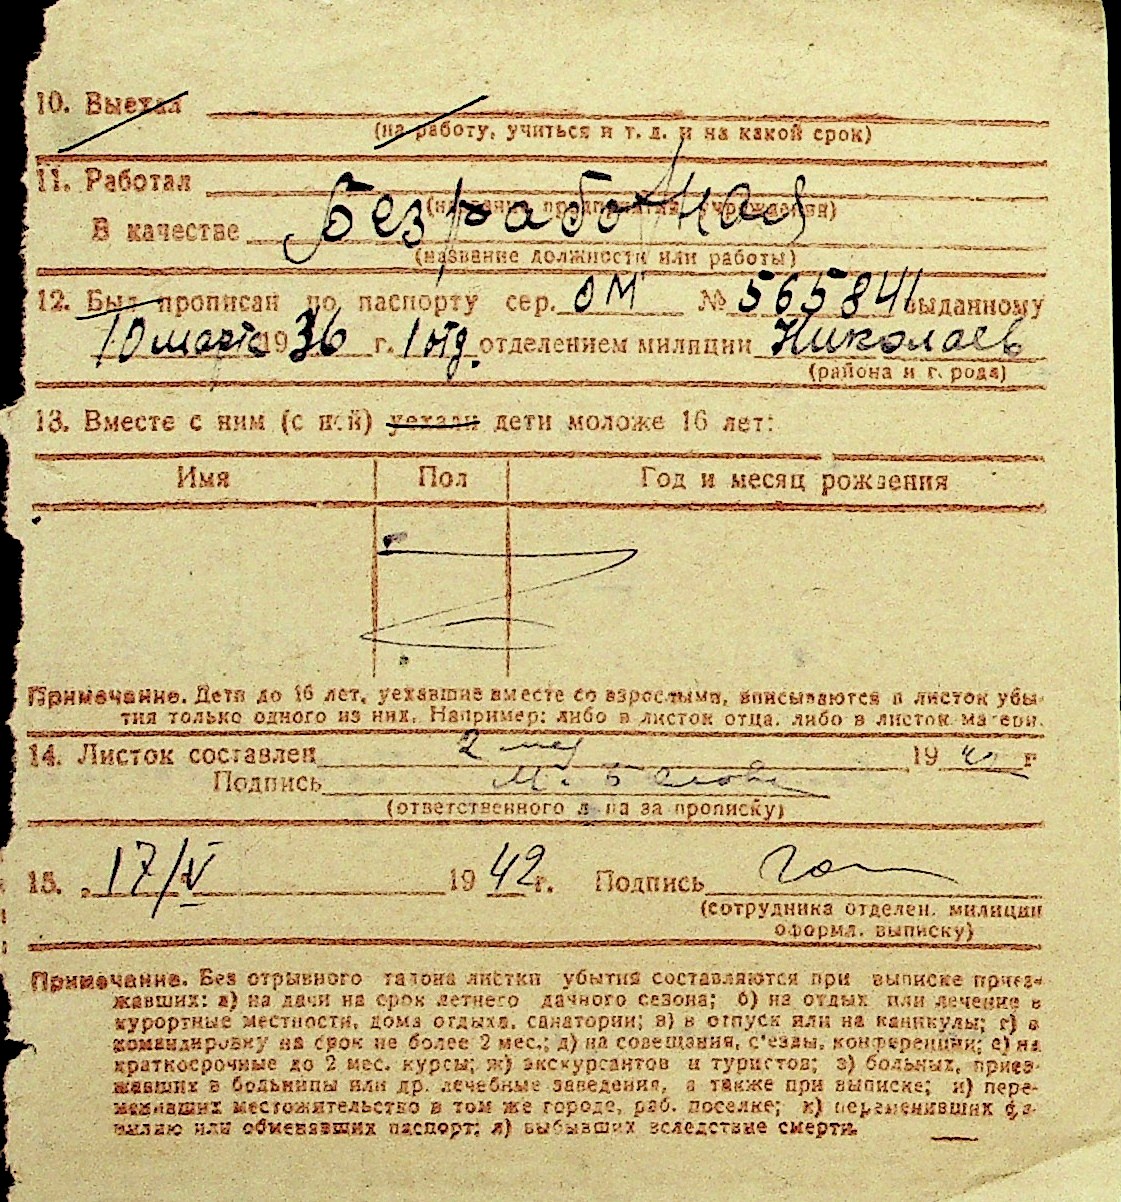 10. Выехал
(на работу, учиться и т. д. и на какой срок)
11. Работал
(название предприятия, учреждения)
В качестве Безработная
(название должности или работы)
12. Был прописан по паспорту сер. ОМ № 565841 выданному
10 марта 1936 г. 1 отд. отделением милиции Николаев
(района и города)
13. Вместе с ним (с ней) уехали дети моложе 16 лет:
Имя Пол Год и месяц рождения
Примечание. Дети до 16 лет, уехавшие вместе со взрослыми, вписываются в листок убы-
тия только одного из них. Например: либо в листок отца, либо в листок матери.
14. Листок составлен 2 мая 19 г
Подпись М.
(ответственного лица за прописку)
15. 17/V 1942 г. Подпись
(сотрудника отделен. милиции
оформл. выписку)
Примечание. Без отрывного талона листки убытия составляются при выписке приез-
жавших: а) на дачи на срок летнего дачного сезона; б) на отдых или лечение в
курортные местности, дома отдыха, санатории; в) в отпуск или на каникулы; г) в
командировку на срок не более 2 мес.; д) на совещания, с'езды, конференции; е) на
краткосрочные до 2 мес. курсы; ж) экскурсантов и туристов; з) больных, приез-
жавших в больницы или др. лечебные заведения, а также при выписке; и) пере-
менивших местожительство в том же городе, раб. поселке; к) переменивших фа-
милию или обменявших паспорт; л) выбывших вследствие смерти.